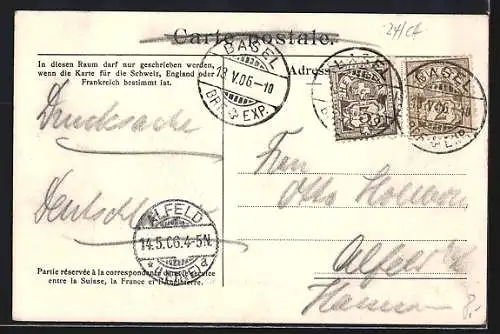 24/cl
Carte postale.
BASEL
13.V.06-10
BRF. EXP.
BASEL
V.06
BRF. EXP.
5
2
In diesen Raum darf nur geschrieben werden,
wenn die Karte für die Schweiz, England oder
Frankreich bestimmt ist.
Adress
Drucksache
Herrn
Otto
ALFELD
14.5.06.4-5N.
* a
Alfeld
Hannov
Partie réservée à la correspondance de cette service
entre la Suisse, la France et l'Angleterre.